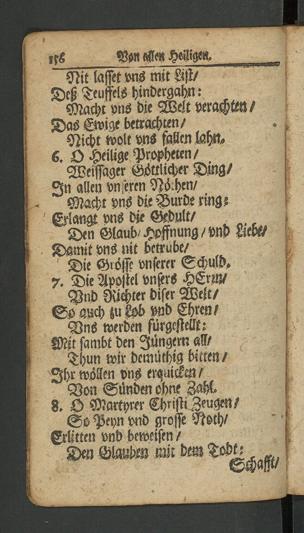 156 Von allen Heiligen.
Nit lasset vns mit List/
Deß Teuffels hindergahn:
Macht vns die Welt verachten/
Das Ewige betrachten/
Nicht wolt vns fallen lahn.
6. O Heilige Propheten/
Weissager Göttlicher Ding/
In allen vnseren Nöthen/
Macht vns die Burde ring:
Erlangt vns die Gedult/
Den Glaub/ Hoffnung/ vnd Liebe/
Damit vns nit betrübe/
Die Grösse vnserer Schuld.
7. Die Apostel vnsers HErrn/
Vnd Richter diser Welt/
So auch zu Lob vnd Ehren/
Vns werden fürgestellt:
Mit sambt den Jüngern all/
Thun wir demüthig bitten/
Ihr wöllen vns erquicken/
Von Sünden ohne Zahl.
8. O Martyrer Christi Zeugen/
So Peyn vnd grosse Noth/
Erlitten vnd beweisen/
Den Glauben mit dem Todt:
Schafft/